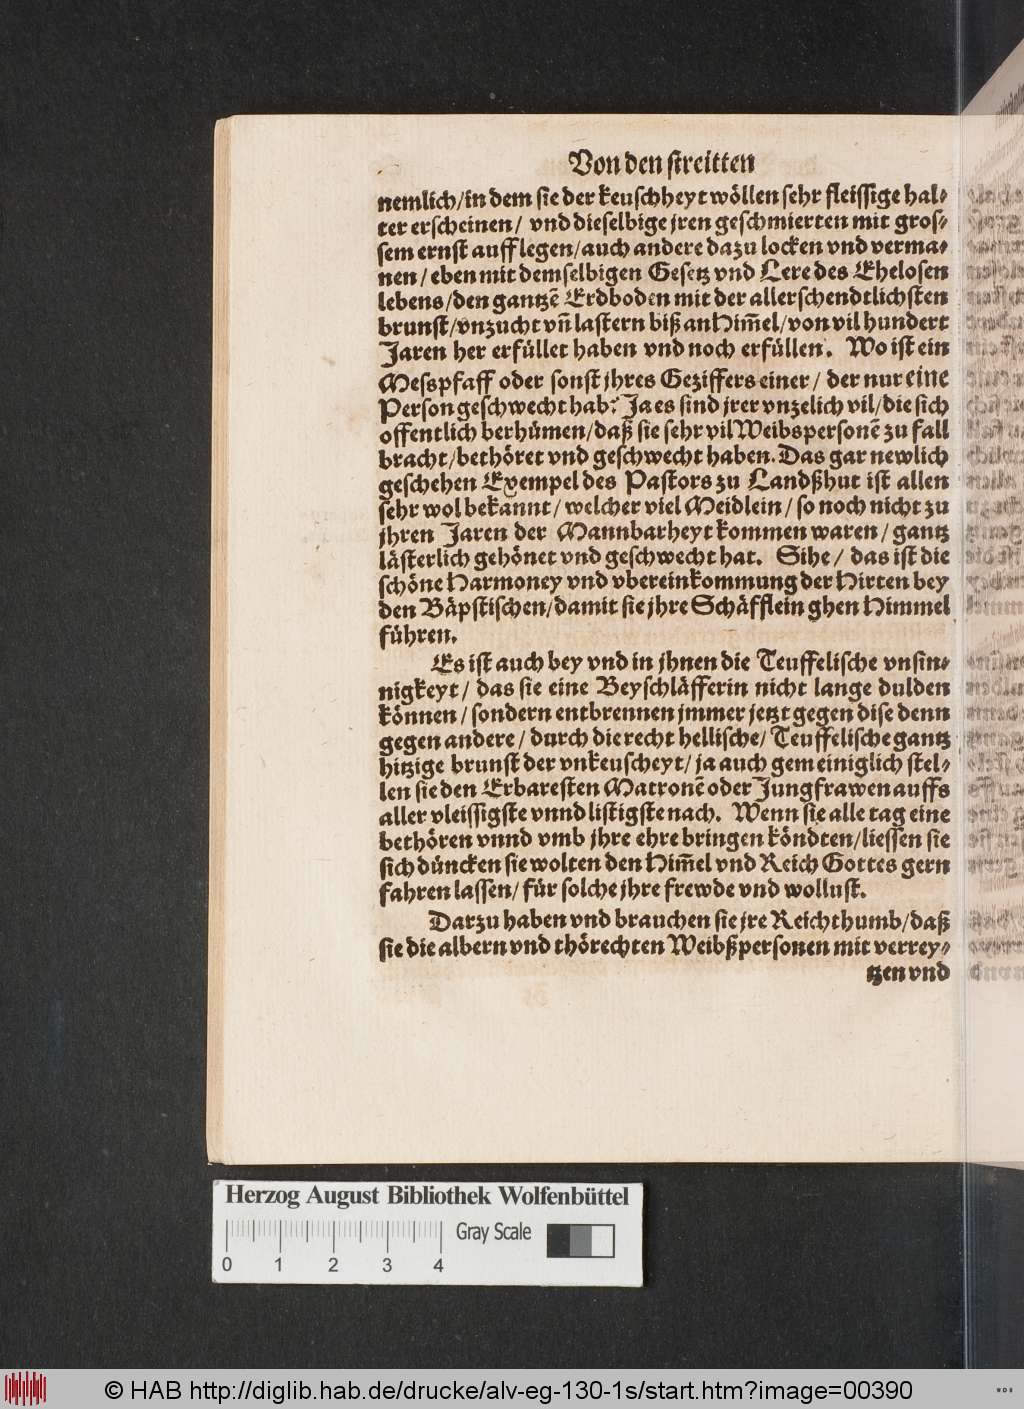 Von den streitten
nemlich/in dem sie der keuschheyt wöllen sehr fleissige hal-
ter erscheinen/ vnd dieselbige jren geschmierten mit gros-
sem ernst aufflegen/auch andere dazu locken vnd verma-
nen/eben mit demselbigen Gesetz vnd Lere des Ehelosen
lebens/den gantzē Erdboden mit der allerschendtlichsten
brunst/vnzucht vn̄ lastern biß an Him̄el/von vil hundert
Jaren her erfüllet haben vnd noch erfüllen. Wo ist ein
Messpfaff oder sonst jhres Geziffers einer/ der nur eine
Person geschwecht hab? Ja es sind jrer vnzelich vil/die sich
offentlich berhümen/daß sie sehr vil Weibspersonē zu fall
bracht/bethöret vnd geschwecht haben. Das gar newlich
geschehen Exempel des Pastors zu Landßhut ist allen
sehr wol bekannt/ welcher viel Meidlein/ so noch nicht zu
jhren Jaren der Mannbarheyt kommen waren/ gantz
lästerlich gehönet vnd geschwecht hat. Sihe/ das ist die
schöne Harmoney vnd vbereinkommung der Hirten bey
den Bäpstischen/damit sie jhre Schäfflein ghen Himmel
führen.
Es ist auch bey vnd in jhnen die Teuffelische vnsin-
nigkeyt/ das sie eine Beyschläfferin nicht lange dulden
können/ sondern entbrennen jmmer jetzt gegen dise denn
gegen andere/ durch die recht hellische/ Teuffelische gantz
hitzige brunst der vnkeuscheyt/ ja auch gemeiniglich stel-
len sie den Erbaresten Matronē oder Jungfrawen auffs
aller vleissigste vnnd listigste nach. Wenn sie alle tag eine
bethören vnnd vmb jhre ehre bringen köndten/liessen sie
sich düncken sie wolten den Him̄el vnd Reich Gottes gern
fahren lassen/ für solche jhre frewde vnd wollust.
Darzu haben vnd brauchen sie jre Reichthumb/daß
sie die albern vnd thörechten Weibßpersonen mit verrey-
tzen vnd
Herzog August Bibliothek Wolfenbüttel
Gray Scale
0 1 2 3 4
© HAB http://diglib.hab.de/drucke/alv-eg-130-1s/start.htm?image=00390